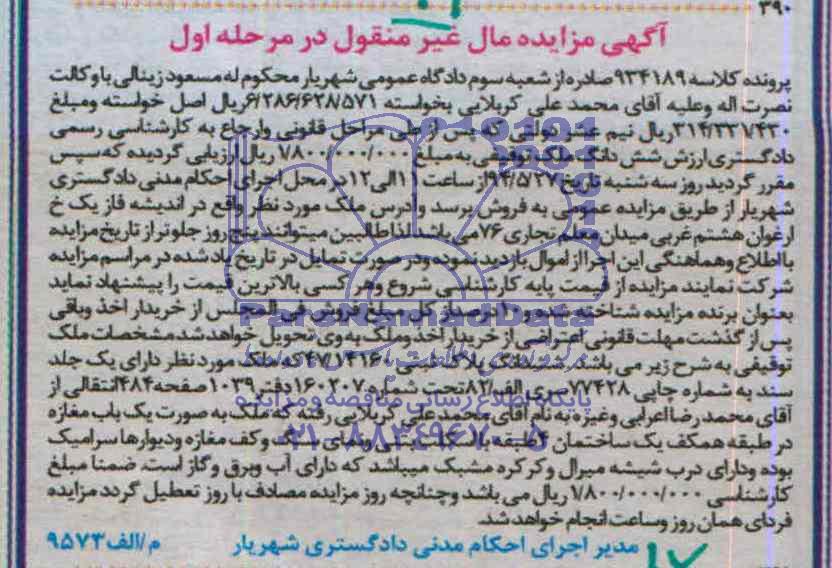 ۳۹۰
آگهی مزایده مال غیر منقول در مرحله اول
پرونده کلاسه ۹۳۴۱۸۹ صادره از شعبه سوم دادگاه عمومی شهریار محکوم له مسعود زینالی با وکالت
نصرت اله وعلیه آقای محمد علی کربلایی بخواسته ۶/۲۸۶/۶۲۸/۵۷۱ ریال اصل خواسته ومبلغ
۳۱۴/۳۳۱/۴۳۰ ریال نیم عشر دولتی که پس از طی مراحل قانونی وارجاع به کارشناسی رسمی
دادگستری ارزش شش دانگ ملک توقیفی به مبلغ ۱/۸۰۰/۰۰۰/۰۰۰ ریال ارزیابی گردیده که سپس
مقرر گردید روز سه شنبه تاریخ ۹۴/۵/۲۷ از ساعت ۱۱ الی ۱۲ در محل اجرای احکام مدنی دادگستری
شهریار از طریق مزایده عمومی به فروش برسد وآدرس ملک مورد نظر واقع در اندیشه فاز یک خ
ارغوان هشتم غربی میدان معلم تجاری ۷۶ می باشد لذا طالبین میتوانند پنج روز جلوتر از تاریخ مزایده
با اطلاع وهماهنگی این اجرا از اموال بازدید نموده ودر صورت تمایل در تاریخ یاد شده در مراسم مزایده
شرکت نمایند مزایده از قیمت پایه کارشناسی شروع وهر کسی بالاترین قیمت را پیشنهاد نماید
بعنوان برنده مزایده شناخته شده و ۱۰ درصد از کل مبلغ فروش فی المجلس از خریدار اخذ وباقی
پس از گذشت مهلت قانونی اعتراضی از خریدار اخذ وملک به وی تحویل خواهد شد مشخصات ملک
توقیفی به شرح زیر می باشد. ششدانگ پلاک ثبتی ۴۷/۱۴۱۶۰ که ملک مورد نظر دارای یک جلد
سند به شماره چاپی ۷۷۴۲۸ سری الف/۸۲ تحت شماره ۱۶۰۲۰۷ دفتر ۱۰۳۹ صفحه ۴۸۴ انتقالی از
آقای محمد رضا اعرابی وغیره به نام آقای محمد علی کربلائی رفته که ملک به صورت یک باب مغازه
در طبقه همکف یک ساختمان ۴ طبقه با اسکلت بتنی ونمای سنگ وکف مغازه ودیوارها سرامیک
بوده ودارای درب شیشه میرال وکرکره مشبک میباشد که دارای آب وبرق وگاز است. ضمنا مبلغ
کارشناسی ۱/۸۰۰/۰۰۰/۰۰۰ ریال می باشد وچنانچه روز مزایده مصادف با روز تعطیل گردد مزایده
فردای همان روز وساعت انجام خواهد شد.
مدیر اجرای احکام مدنی دادگستری شهریار م/الف ۹۵۷۳
ParsNamadData
پایگاه اطلاع رسانی مناقصه ومزایده
۰۲۱-۸۸۳۴۹۶۷۰-۵